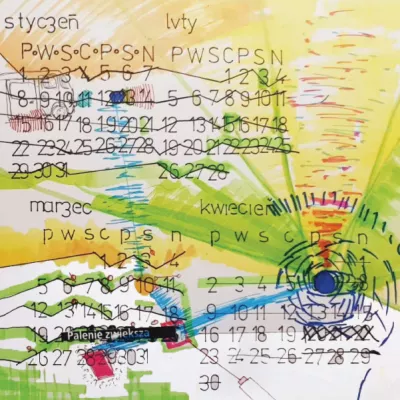 styczeń
P.W.S.C.P.S.N
1 2 3 4 5 6 7
8 9 10 11 12 13 14
15 16 17 18 19 20 21
22 23 24 25 26 27 28
29 30 31
luty
P W S C P S N
1 2 3 4
5 6 7 8 9 10 11
12 13 14 15 16 17 18
19 20 21 22 23 24 25
26 27 28
marzec
p w s c p s n
1 2 3 4
5 6 7 8 9 10 11
12 13 14 15 16 17 18
19
Palenie zwiększa
26 27 28 29 30 31
kwiecień
p w s c p s n
2 3 4 8
9 10 11 12 13 14 15
16 17 18 19
23 24 25 26 27 28 29
30